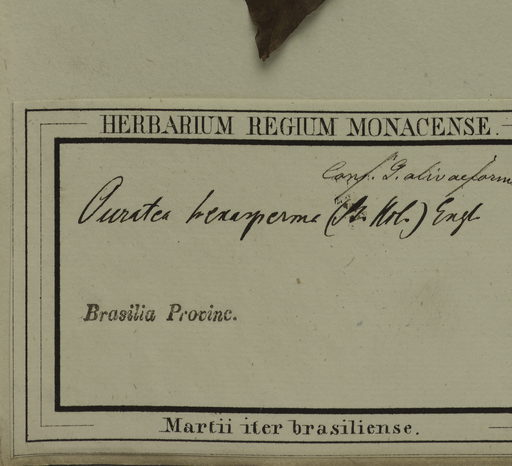 HERBARIUM REGIUM MONACENSE.
Conf. O. olivaeform
Ouratea hexasperma (St. Hil.) Engl
Brasilia Provinc.
Martii iter brasiliense.